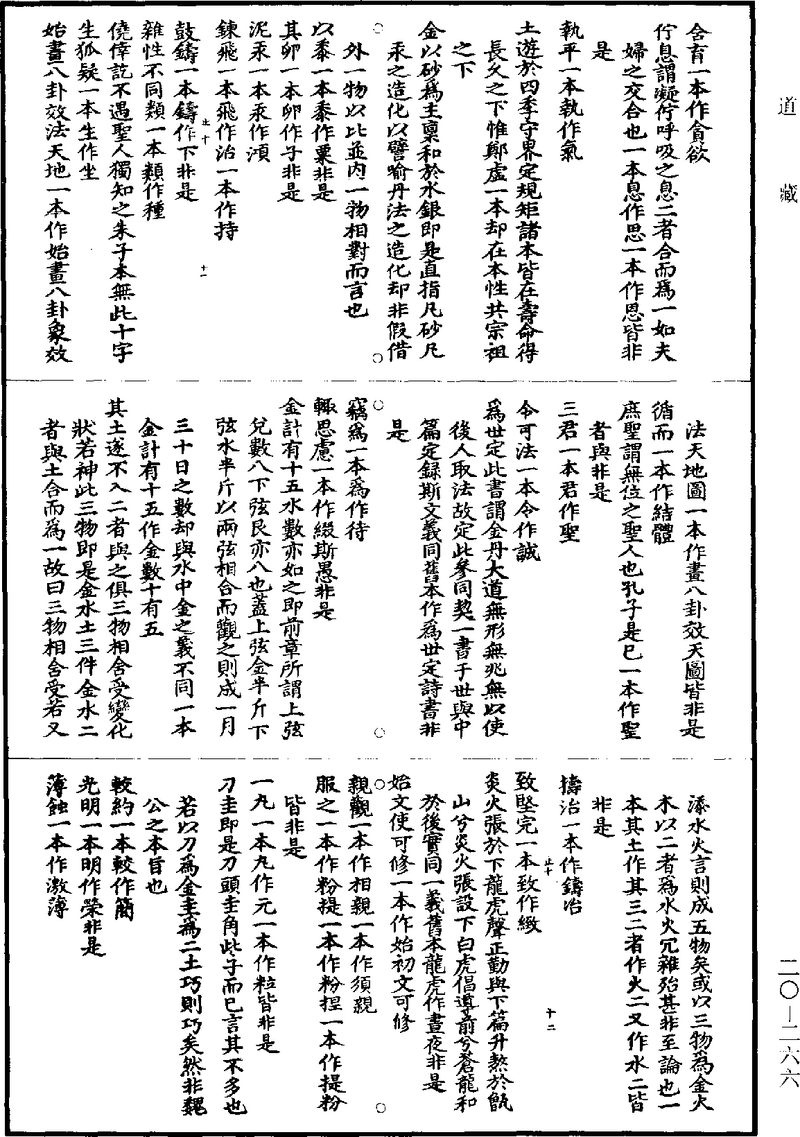 道藏
含育一本作貪欲
佇息謂凝佇呼吸之息二者合而爲一如夫
婦之交合也一本息作思一本作恩皆非
是
執平一本執作氣
土遊於四季守界定規矩諸本皆在壽命得
長久之下惟鄭虛一本却在本性共宗祖
之下
金以砂爲主稟和於水銀即是直指凡砂凡
汞之造化以譬喻丹法之造化却非假借
外一物以比並内一物相對而言也
以黍一本黍作粟非是
其卵一本卵作子非是
泥汞一本汞作澒
鍊飛一本飛作治一本作持
鼓鑄一本鑄作下非是
止十
十一
雜性不同類一本類作種
僥倖訖不遇聖人獨知之朱子本無此十字
生狐疑一本生作坐
始畫八卦效法天地一本作始畫八卦象效
法天地圖一本作畫八卦效天圖皆非是
循而一本作結體
庶聖謂無位之聖人也孔子是已一本作聖
者與非是
三君一本君作聖
令可法一本令作誠
爲世定此書謂金丹大道無形無兆無以使
後人取法故定此參同契一書于世與中
篇定録斯文義同舊本作爲世定詩書非
是
竊爲一本爲作待
輙思慮一本作綴斯愚非是
金計有十五水數亦如之即前章所謂上弦
兌數八下弦艮亦八也蓋上弦金半斤下
弦水半斤以兩弦相合而觀之則成一月
三十日之數却與水中金之義不同一本
金計有十五作金數十有五
其土遂不入二者與之俱三物相含受變化
狀若神此三物即是金水土三件金水二
者與土合而爲一故曰三物相含受若又
添水火言則成五物矣或以三物爲金火
木以二者爲水火冗雜殆甚非至論也一
本其土作其三二者作火二又作水二皆
非是
擣治一本作鑄冶
止十
十二
致堅完一本致作緻
炎火張於下龍虎聲正勤與下篇升熬於甑
山兮炎火張設下白虎倡導前兮蒼龍和
於後實同一義舊本龍虎作晝夜非是
始文使可修一本作始初文可修
親觀一本作相親一本作須親
服之一本作粉提一本作粉捏一本作提粉
皆非是
一九一本九作元一本作粒皆非是
刀圭即是刀頭圭角此子而已言其不多也
若以刀爲金圭爲二土巧則巧矣然非魏
公之本旨也
較約一本較作簡
光明一本明作榮非是
薄蝕一本作激薄
二〇—二六六